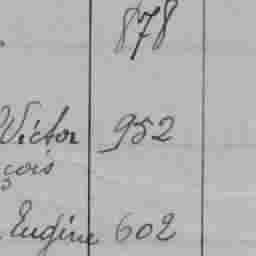 878
Victor 952
çois
Eugène 602